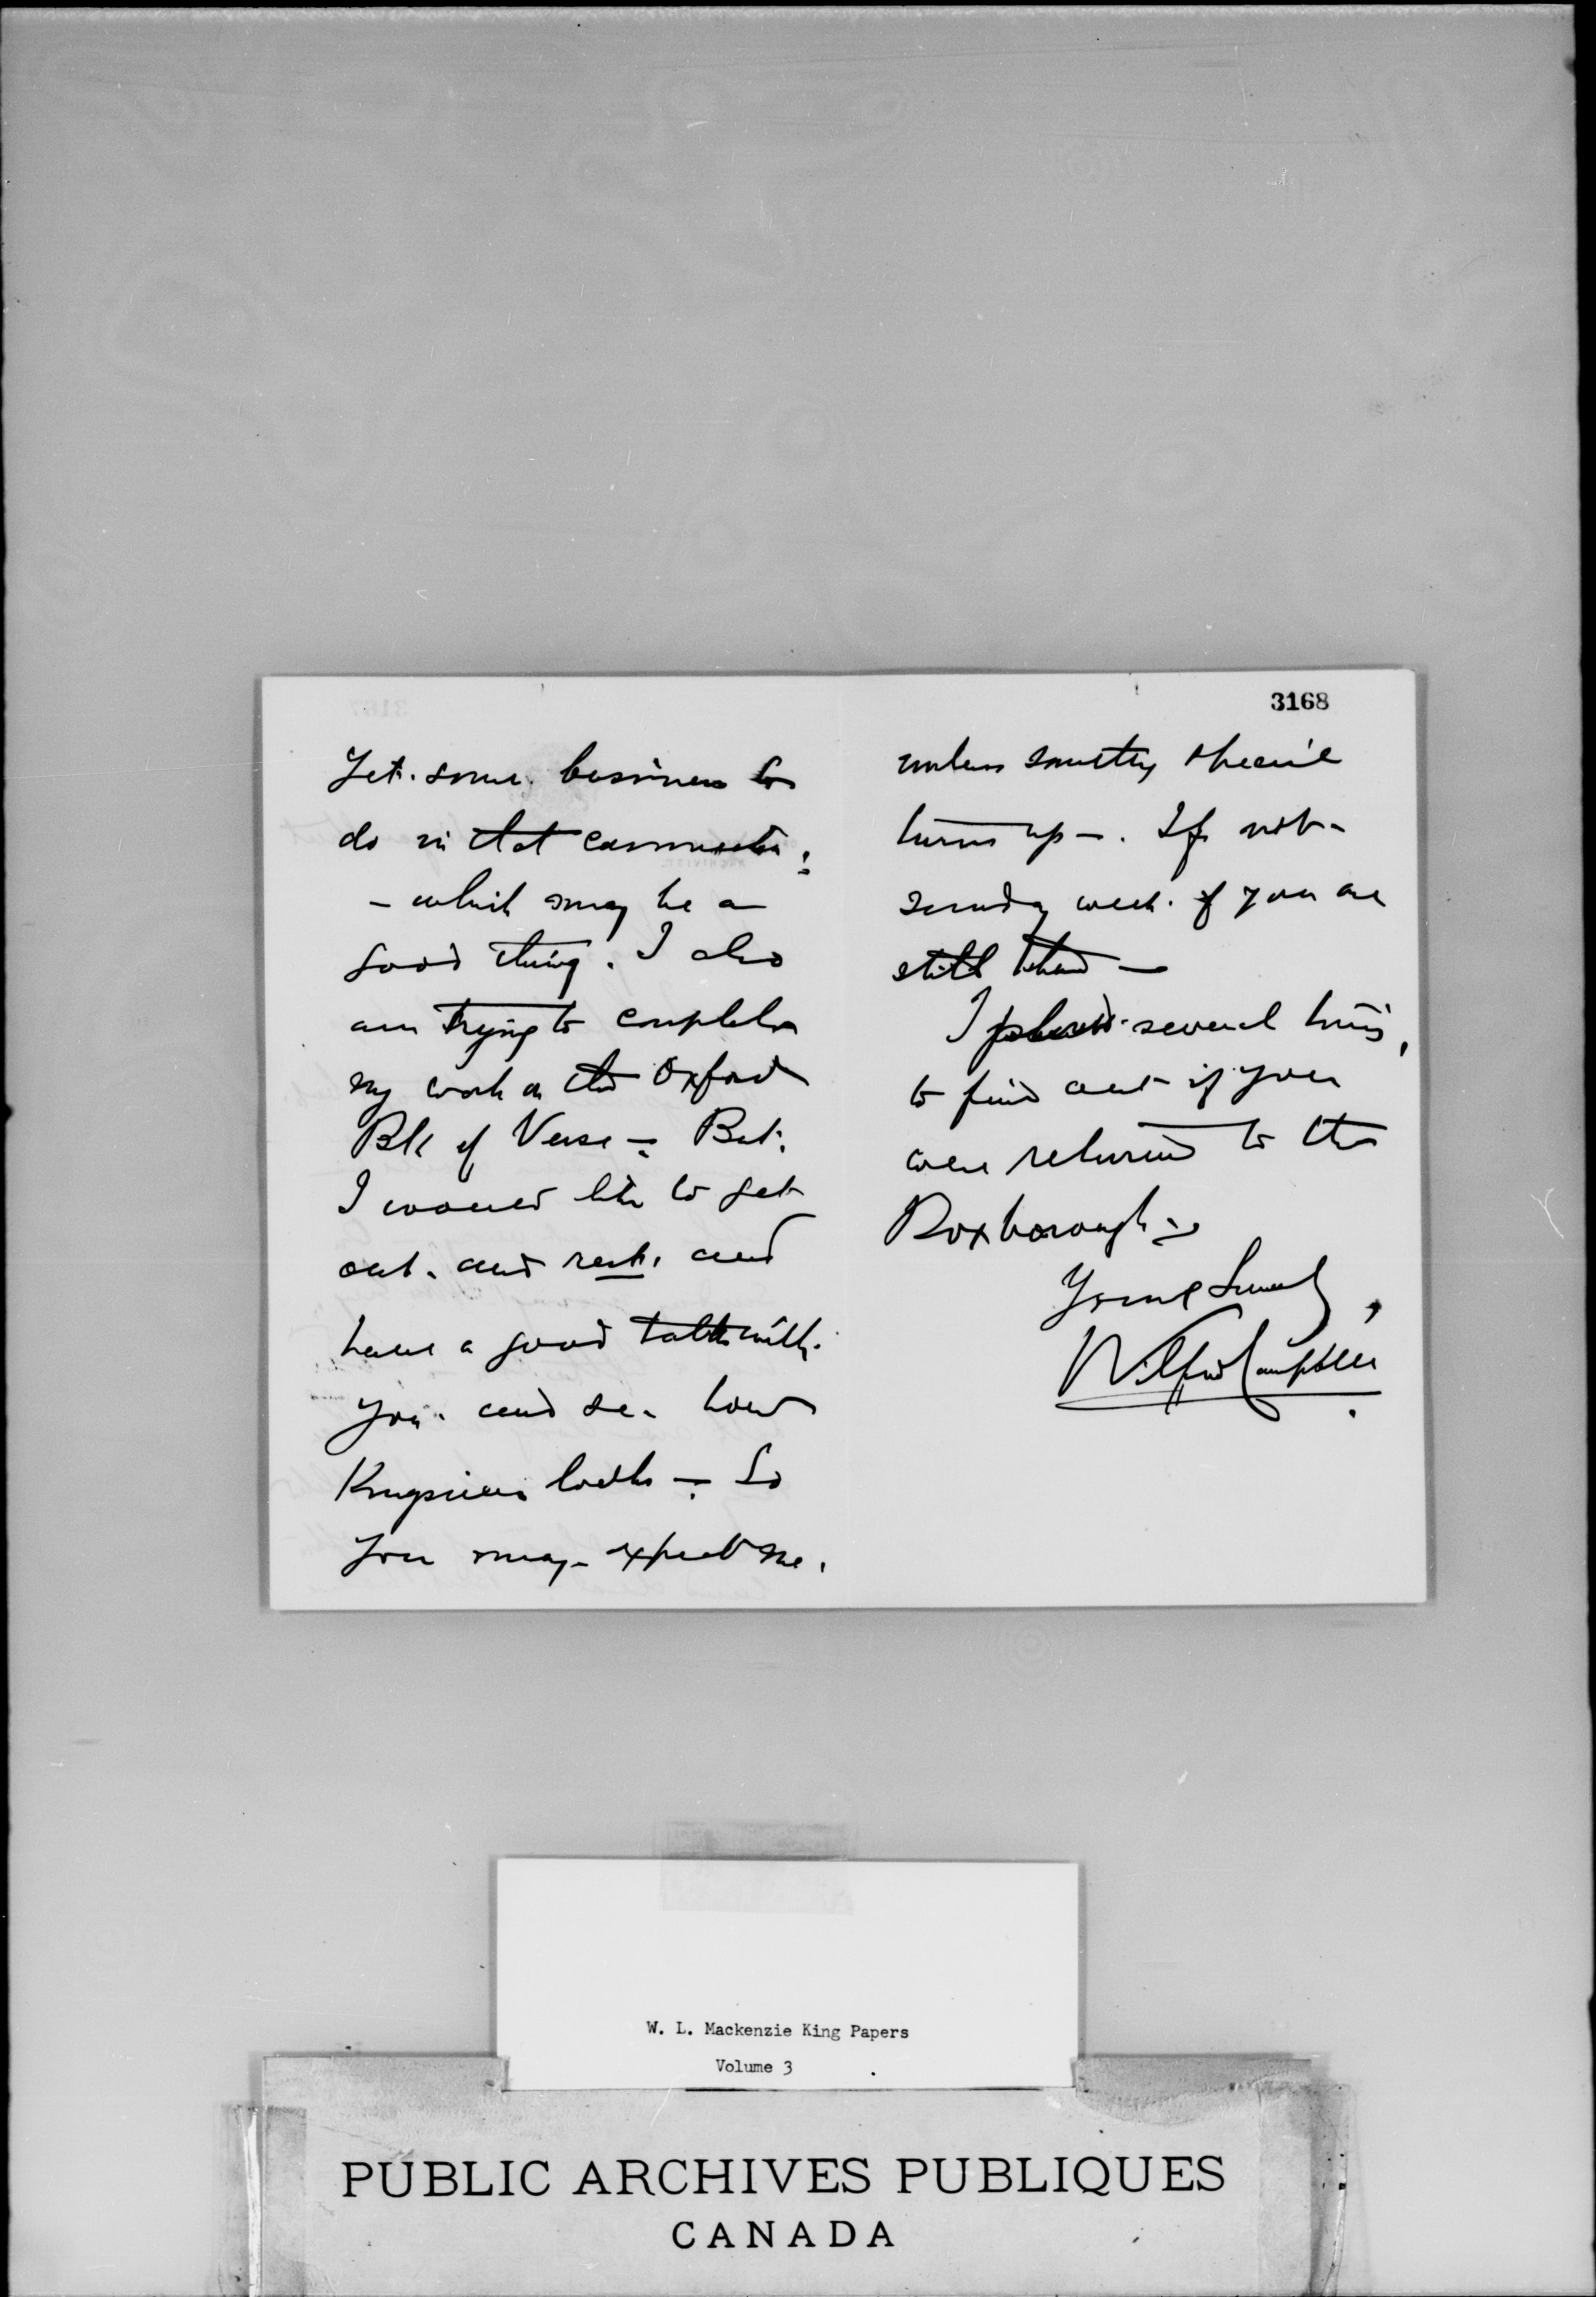 3168
Yet. some business to
do in that connection;
- which may be a
good thing. I also
am trying to complete
my work on the Oxford
Bk of Verse - But.
I would like to get
out. and rest, and
have a good talk with.
you. and see how
Kingsmere looks - So
you may expect me,
unless something special
turns up -. If not -
Sunday week. if you are
still there -
I phoned several times,
to find out if you
were returned to the
Roxborough -
Yours Sincerely,
Wilfred Campbell
W. L. Mackenzie King Papers
Volume 3
PUBLIC ARCHIVES PUBLIQUES
CANADA